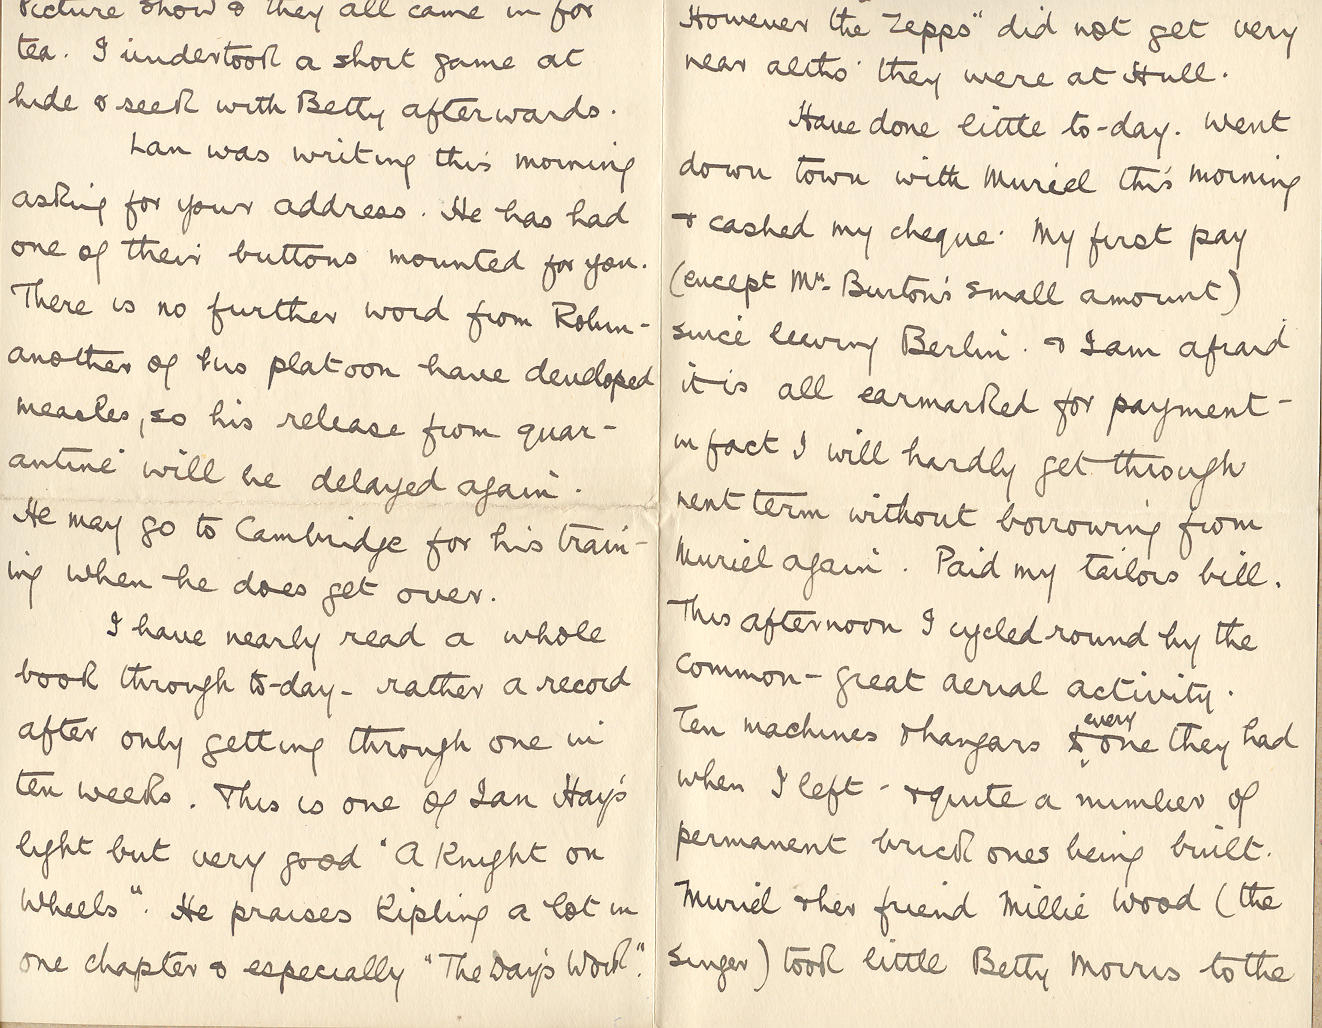 Picture show & they all came in for
tea. I undertook a short game at
hide & seek with Betty afterwards.
Lan was writing this morning
asking for your address. He has had
one of their buttons mounted for you.
There is no further word from Robin -
another of his platoon have developed
measles, so his release from quar-
antine will be delayed again.
He may go to Cambridge for his train-
ing when he does get over.
I have nearly read a whole
book through to-day - rather a record
after only getting through one in
ten weeks. This is one of Ian Hay's
light but very good "A Knight on
Wheels". He praises Kipling a lot in
one chapter & especially "The Day's Work".
However the "Zepps" did not get very
near altho' they were at Hull.
Have done little to-day. Went
down town with Muriel this morning
& cashed my cheque. My first pay
(except Mr. Burton's small amount)
since leaving Berlin. & I am afraid
it is all earmarked for payment -
in fact I will hardly get through
next term without borrowing from
Muriel again. Paid my tailors bill.
This afternoon I cycled round by the
common - great aerial activity.
Ten machines & hangars to every one they had
when I left - & quite a number of
permanent brick ones being built.
Muriel & her friend Millie Wood (the
singer) took little Betty Morris to the